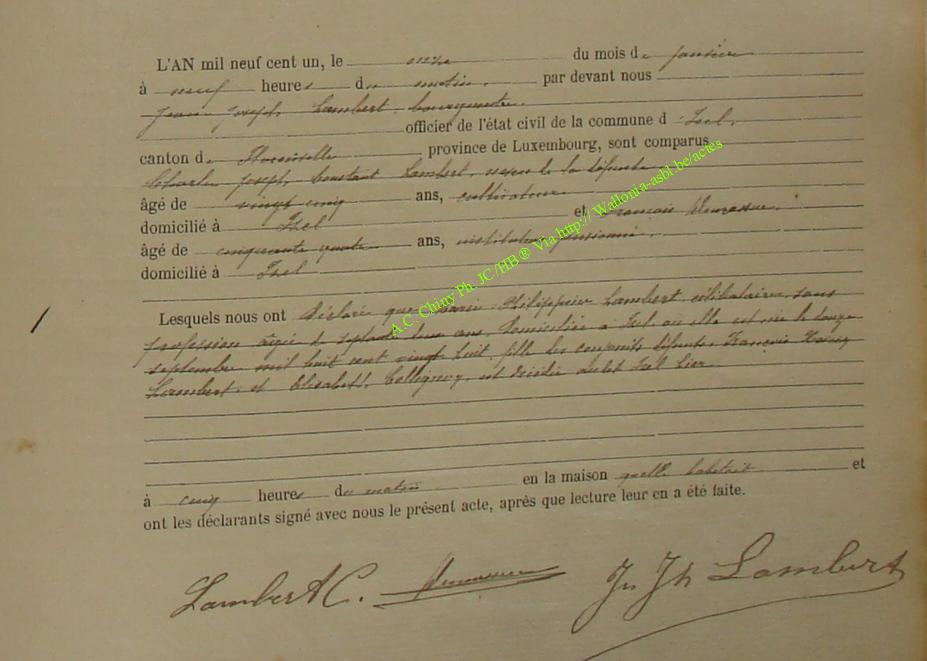 L'AN mil neuf cent un, le onze du mois de janvier
à neuf heures du matin, par devant nous
Jean Joseph Lambert, bourgmestre.
officier de l'état civil de la commune d Izel,
canton de Florenville province de Luxembourg, sont comparus
Charles Joseph Constant Lambert, neveu de la défunte
âgé de vingt cinq ans, cultivateur
domicilié à Izel et François
âgé de cinquante quatre ans, instituteur pensionné.
domicilié à Izel
Lesquels nous ont déclaré que Marie Philippine Lambert, célibataire, sans
profession âgée de septante deux ans, domiciliée à Izel où elle est née le douze
septembre mil huit cent vingt huit, fille des conjoints défunts François
Lambert, et Elisabeth Collignon, est décédée audit Izel hier
à cinq heures du matin en la maison quelle habitait et
ont les déclarants signé avec nous le présent acte, après que lecture leur en a été faite.
Lambert C. Jn Jh Lambert
A.C. Chiny Ph. JC/HB® Via http:// Wallonia-asbl.be/actes